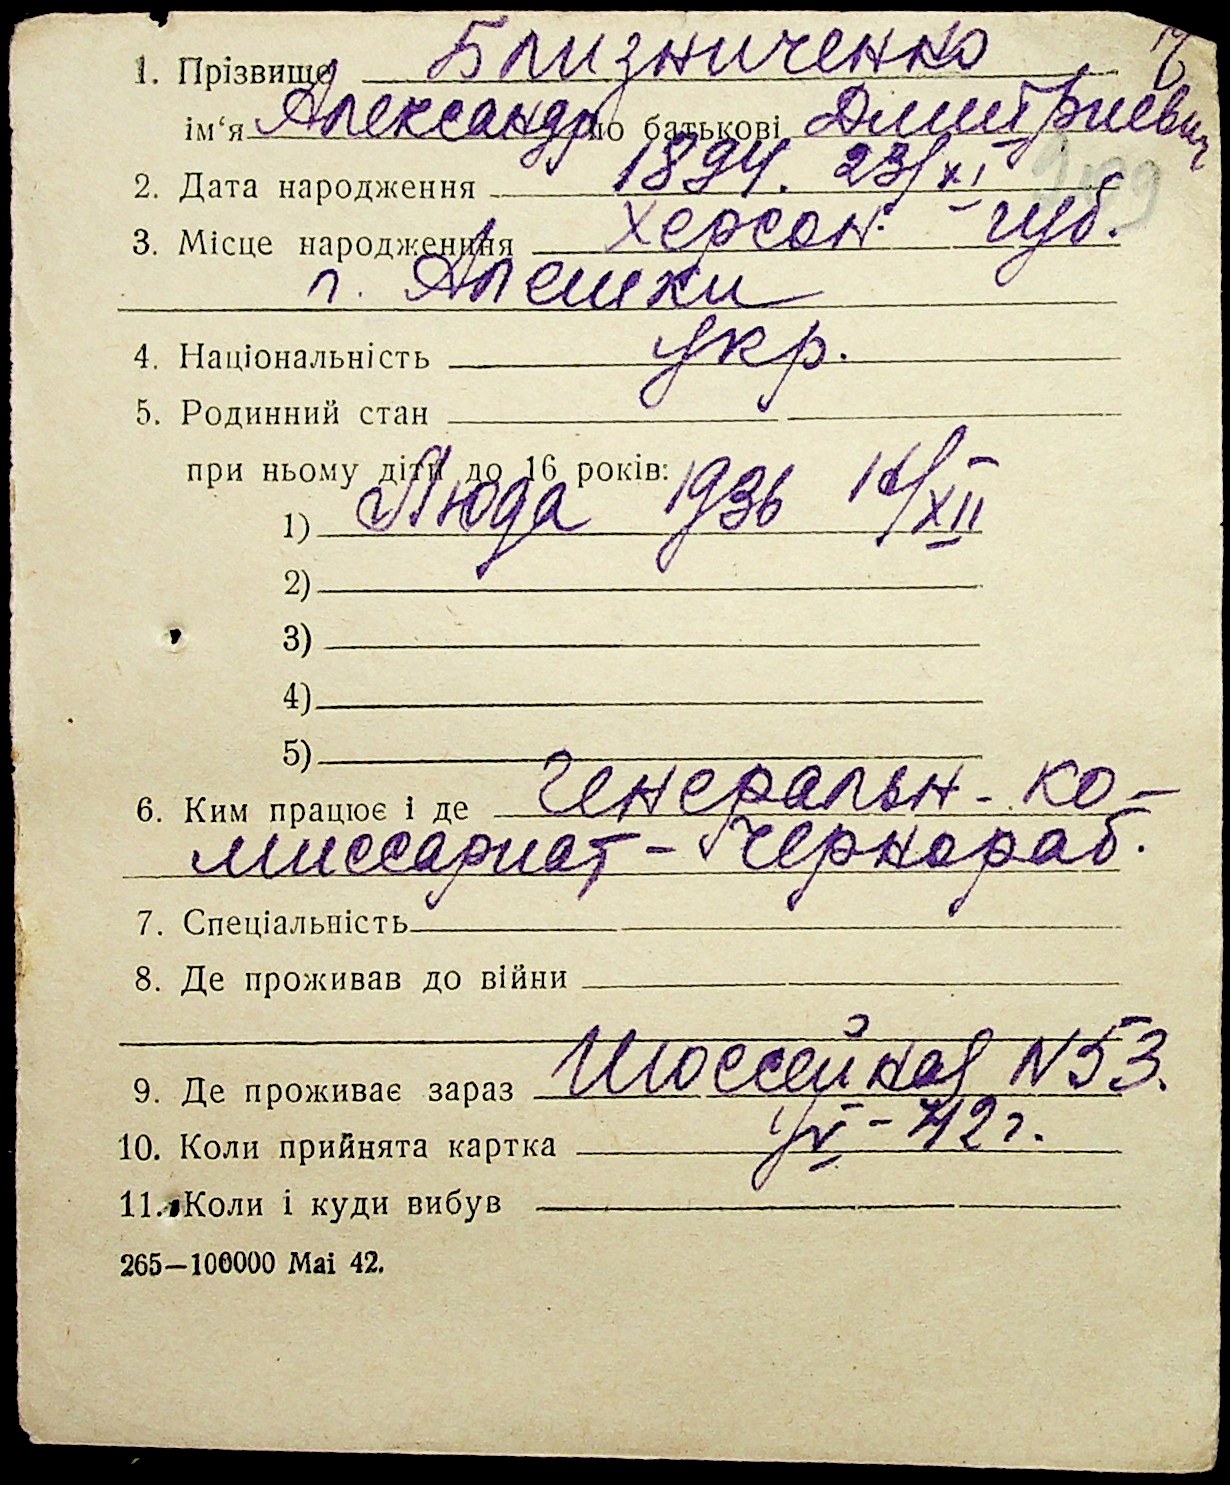 1. Прізвище Близниченко
ім‘я Александр по батькові Дмитриевич
2. Дата народження 1894. 23/XI
3. Місце народженння Херсон. губ.
г. Алешки
4. Національність укр.
5. Родинний стан
при ньому діти до 16 років:
1) Люда 1936 /XII
2)
3)
4)
5)
6. Ким працює і де Генеральн. ко-
миссариат - Чернораб.
7. Спеціальність
8. Де проживав до війни
9. Де проживає зараз Шоссейная N 53.
10. Коли прийнята картка - 42 г.
11. Коли і куди вибув
265—100000 Mai 42.